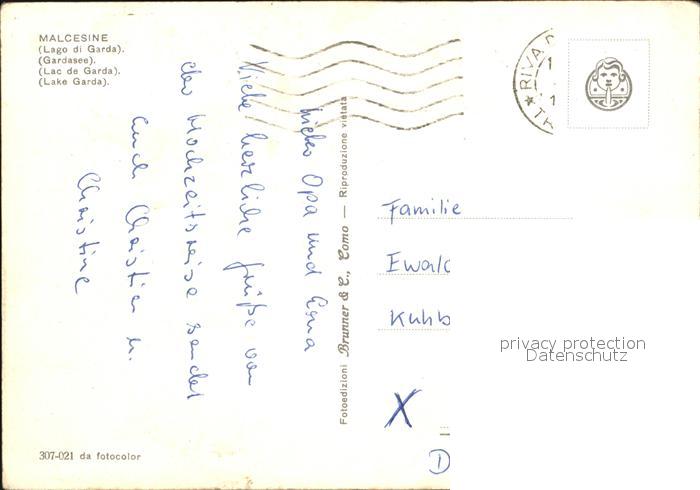 MALCESINE
(Lago di Garda).
(Gardasee).
(Lac de Garda).
(Lake Garda).
Lieber Opa und Oma
Viele herzliche Grüße von
der Hochzeitsreise sendet
Euch Christian u.
Christine
307-021 da fotocolor
Fotoedizioni Brunner & C., Como — Riproduzione vietata
★ RIVA D
TN
Familie
Ewald
Kuhb
X
D
privacy protection
Datenschutz